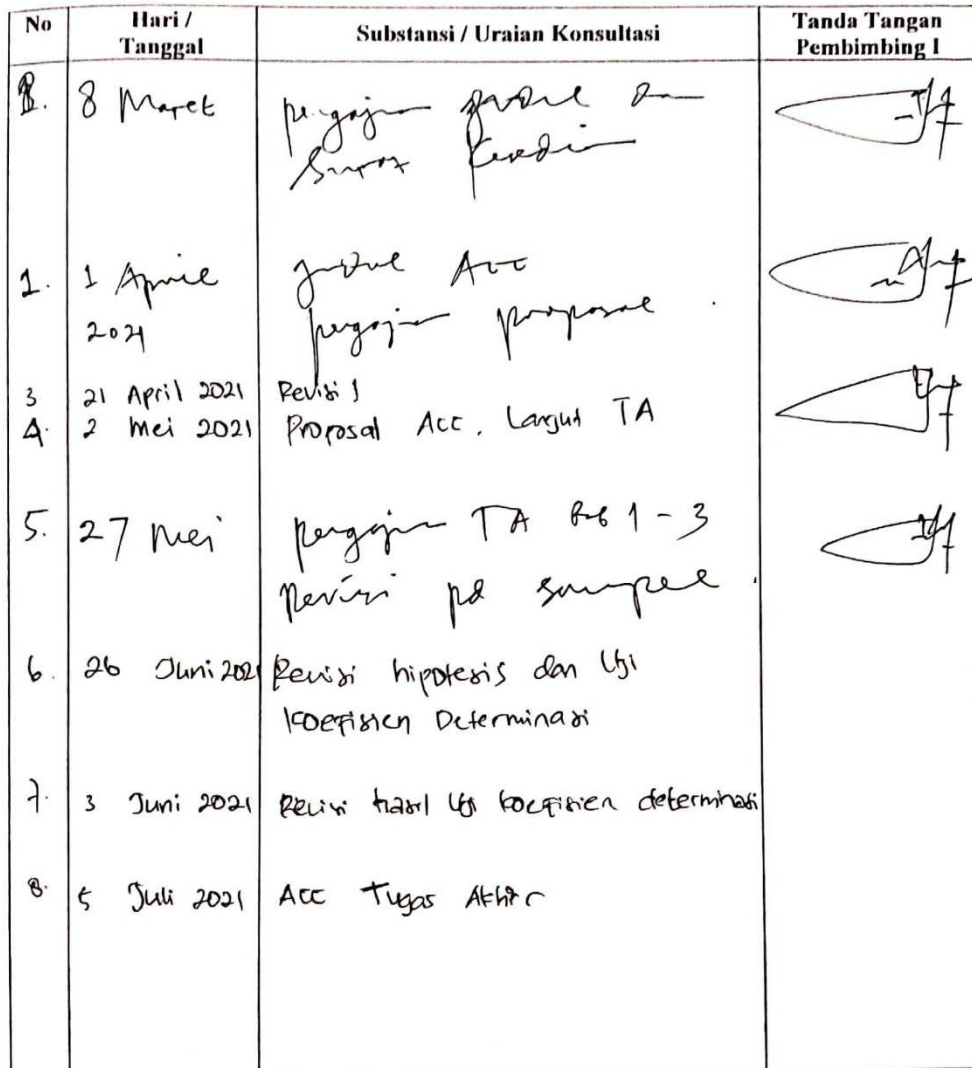 No Hari / Tanggal Substansi / Uraian Konsultasi Tanda Tangan Pembimbing I
1. 8 Maret pengajuan judul dan
surat
1. 1 April judul Acc
2021 pengajuan proposal.
3 21 April 2021 Revisi 1
4. 2 Mei 2021 Proposal Acc. Lanjut TA
5. 27 Mei pengajuan TA Bab 1 - 3
revisi pd sampel.
6. 26 Juni 2021 Revisi hipotesis dan Uji
koefisien Determinasi
7. 3 Juni 2021 Revisi hasil Uji koefisien determinasi
8. 5 Juli 2021 Acc Tugas Akhir